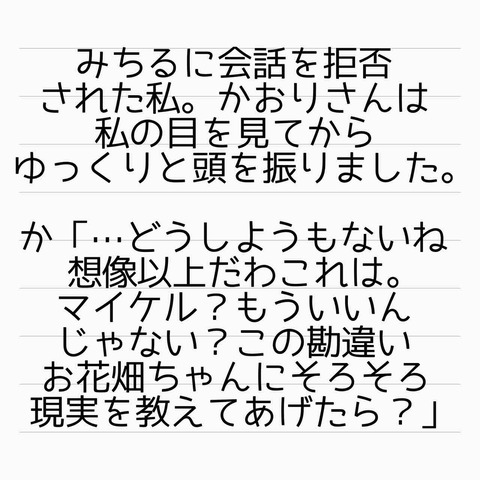 みちるに会話を拒否
された私。かおりさんは
私の目を見てから
ゆっくりと頭を振りました。
か「…どうしようもないね
想像以上だわこれは。
マイケル？もういいん
じゃない？この勘違い
お花畑ちゃんにそろそろ
現実を教えてあげたら？」